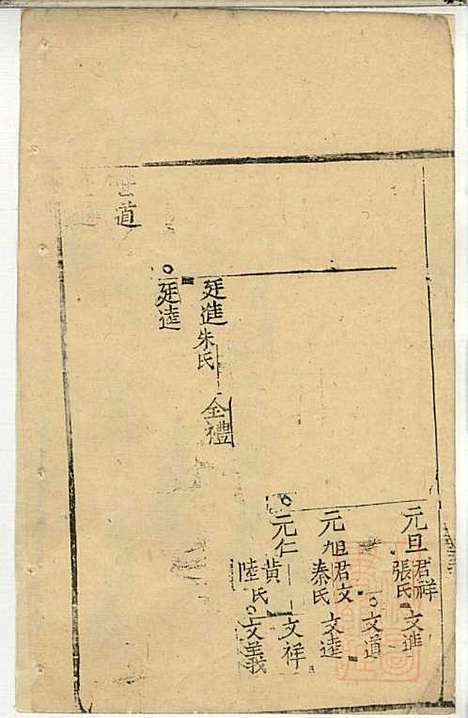 元旦
君祥
張氏
文進
文道
元旭
君文
秦氏
文逵
元仁
黄氏
陸氏
文祥
文義
廷進
朱氏
全禮
廷逵
世道